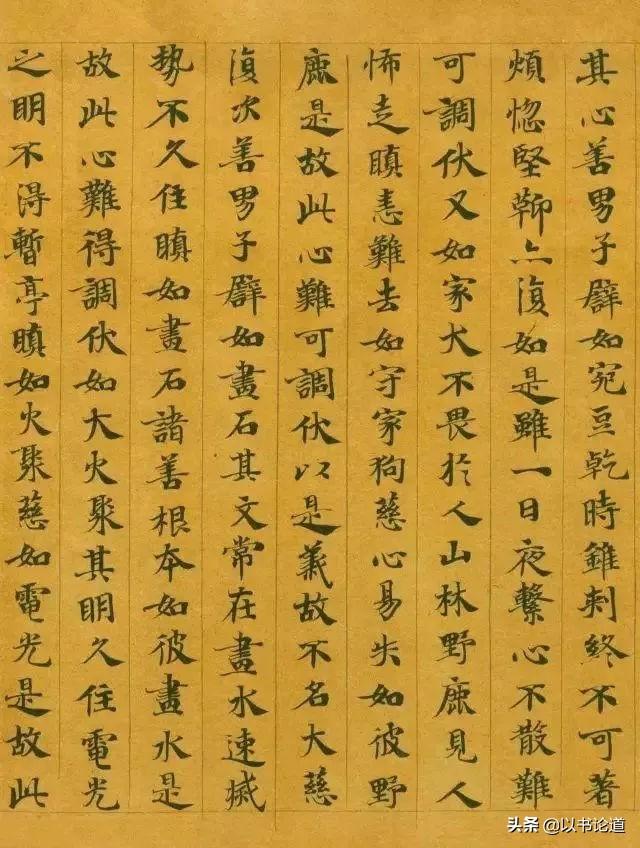 其心善男子譬如宛豆乾時雖刺終不可著
煩惱堅鞕亦復如是雖一日夜繫心不散難
可調伏又如家犬不畏於人山林野鹿見人
怖走瞋恚難去如守家狗慈心易失如彼野
鹿是故此心難可調伏以是義故不名大慈
復次善男子譬如畫石其文常在畫水速滅
勢不久住瞋如畫石諸善根本如彼畫水是
故此心難得調伏如大火聚其明久住電光
之明不得暫亭瞋如火聚慈如電光是故此
头条 @以书论道